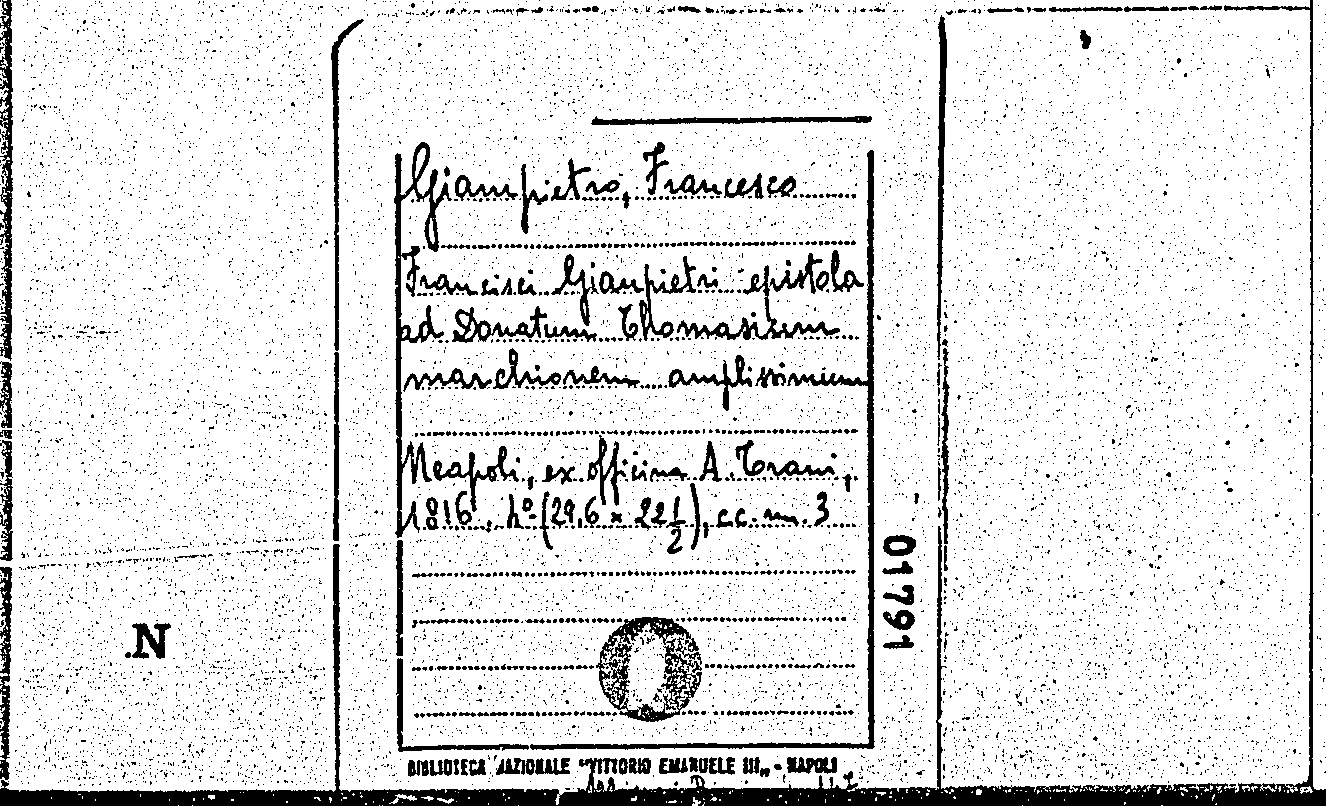 Giampietro, Francesco
Francisci Gianpietri epistola
ad Donatum Thomasium
marchionem amplissimum
Neapoli, ex officina A. Trani,
1816, 4º (29,6 x 22 1/2), cc. nn. 3
01791
.N
BIBLIOTECA NAZIONALE "VITTORIO EMANUELE III" - NAPOLI